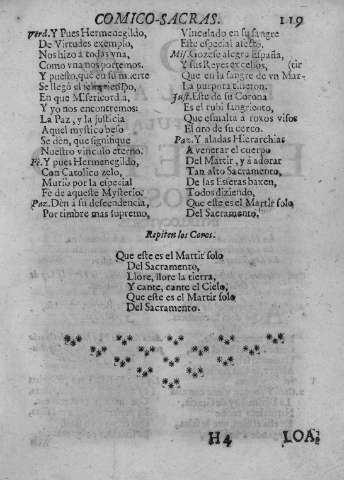 COMICO-SACRAS. 119
Verd. Y Pues Hermenegildo,
De Virtudes exemplo,
Nos hizo à todas vna,
Como vna nos portemos.
Y puesto, que en su muerte
Se llegò el tiempo,
En que Misericordia,
Y yo nos encontremos:
La Paz, y la justicia
Aquel mystico beso
Se dèn, que signifique
Nuestro vinculo eterno.
Fè. Y pues Hermenegildo,
Con Catolico zelo,
Murio por la especial
Fè de aqueste Mysterio.
Paz. Den à su descendencia,
Por timbre mas supremo,
Vinculado en su sangre
Este especial afecto.
Mis. Gozese alegre España,
Y sus Reyes excelsos, (tir
Que en la sangre de vn Mar-
La purpura tiñeron.
Just. Este de su Corona
Es el rubì sangriento,
Que esmalta à roxos visos
El oro de su cerco.
Paz. Y aladas Hierarchias
A venerar el cuerpo
Del Martir, y à adorar
Tan alto Sacramento,
De las Esferas baxen,
Todos diziendo,
Que este es el Martir solo
Del Sacramento.
Repiten los Coros.
Que este es el Martir solo
Del Sacramento,
Llore, llore la tierra,
Y cante, cante el Cielo,
Que este es el Martir solo
Del Sacramento.
H4 LOA